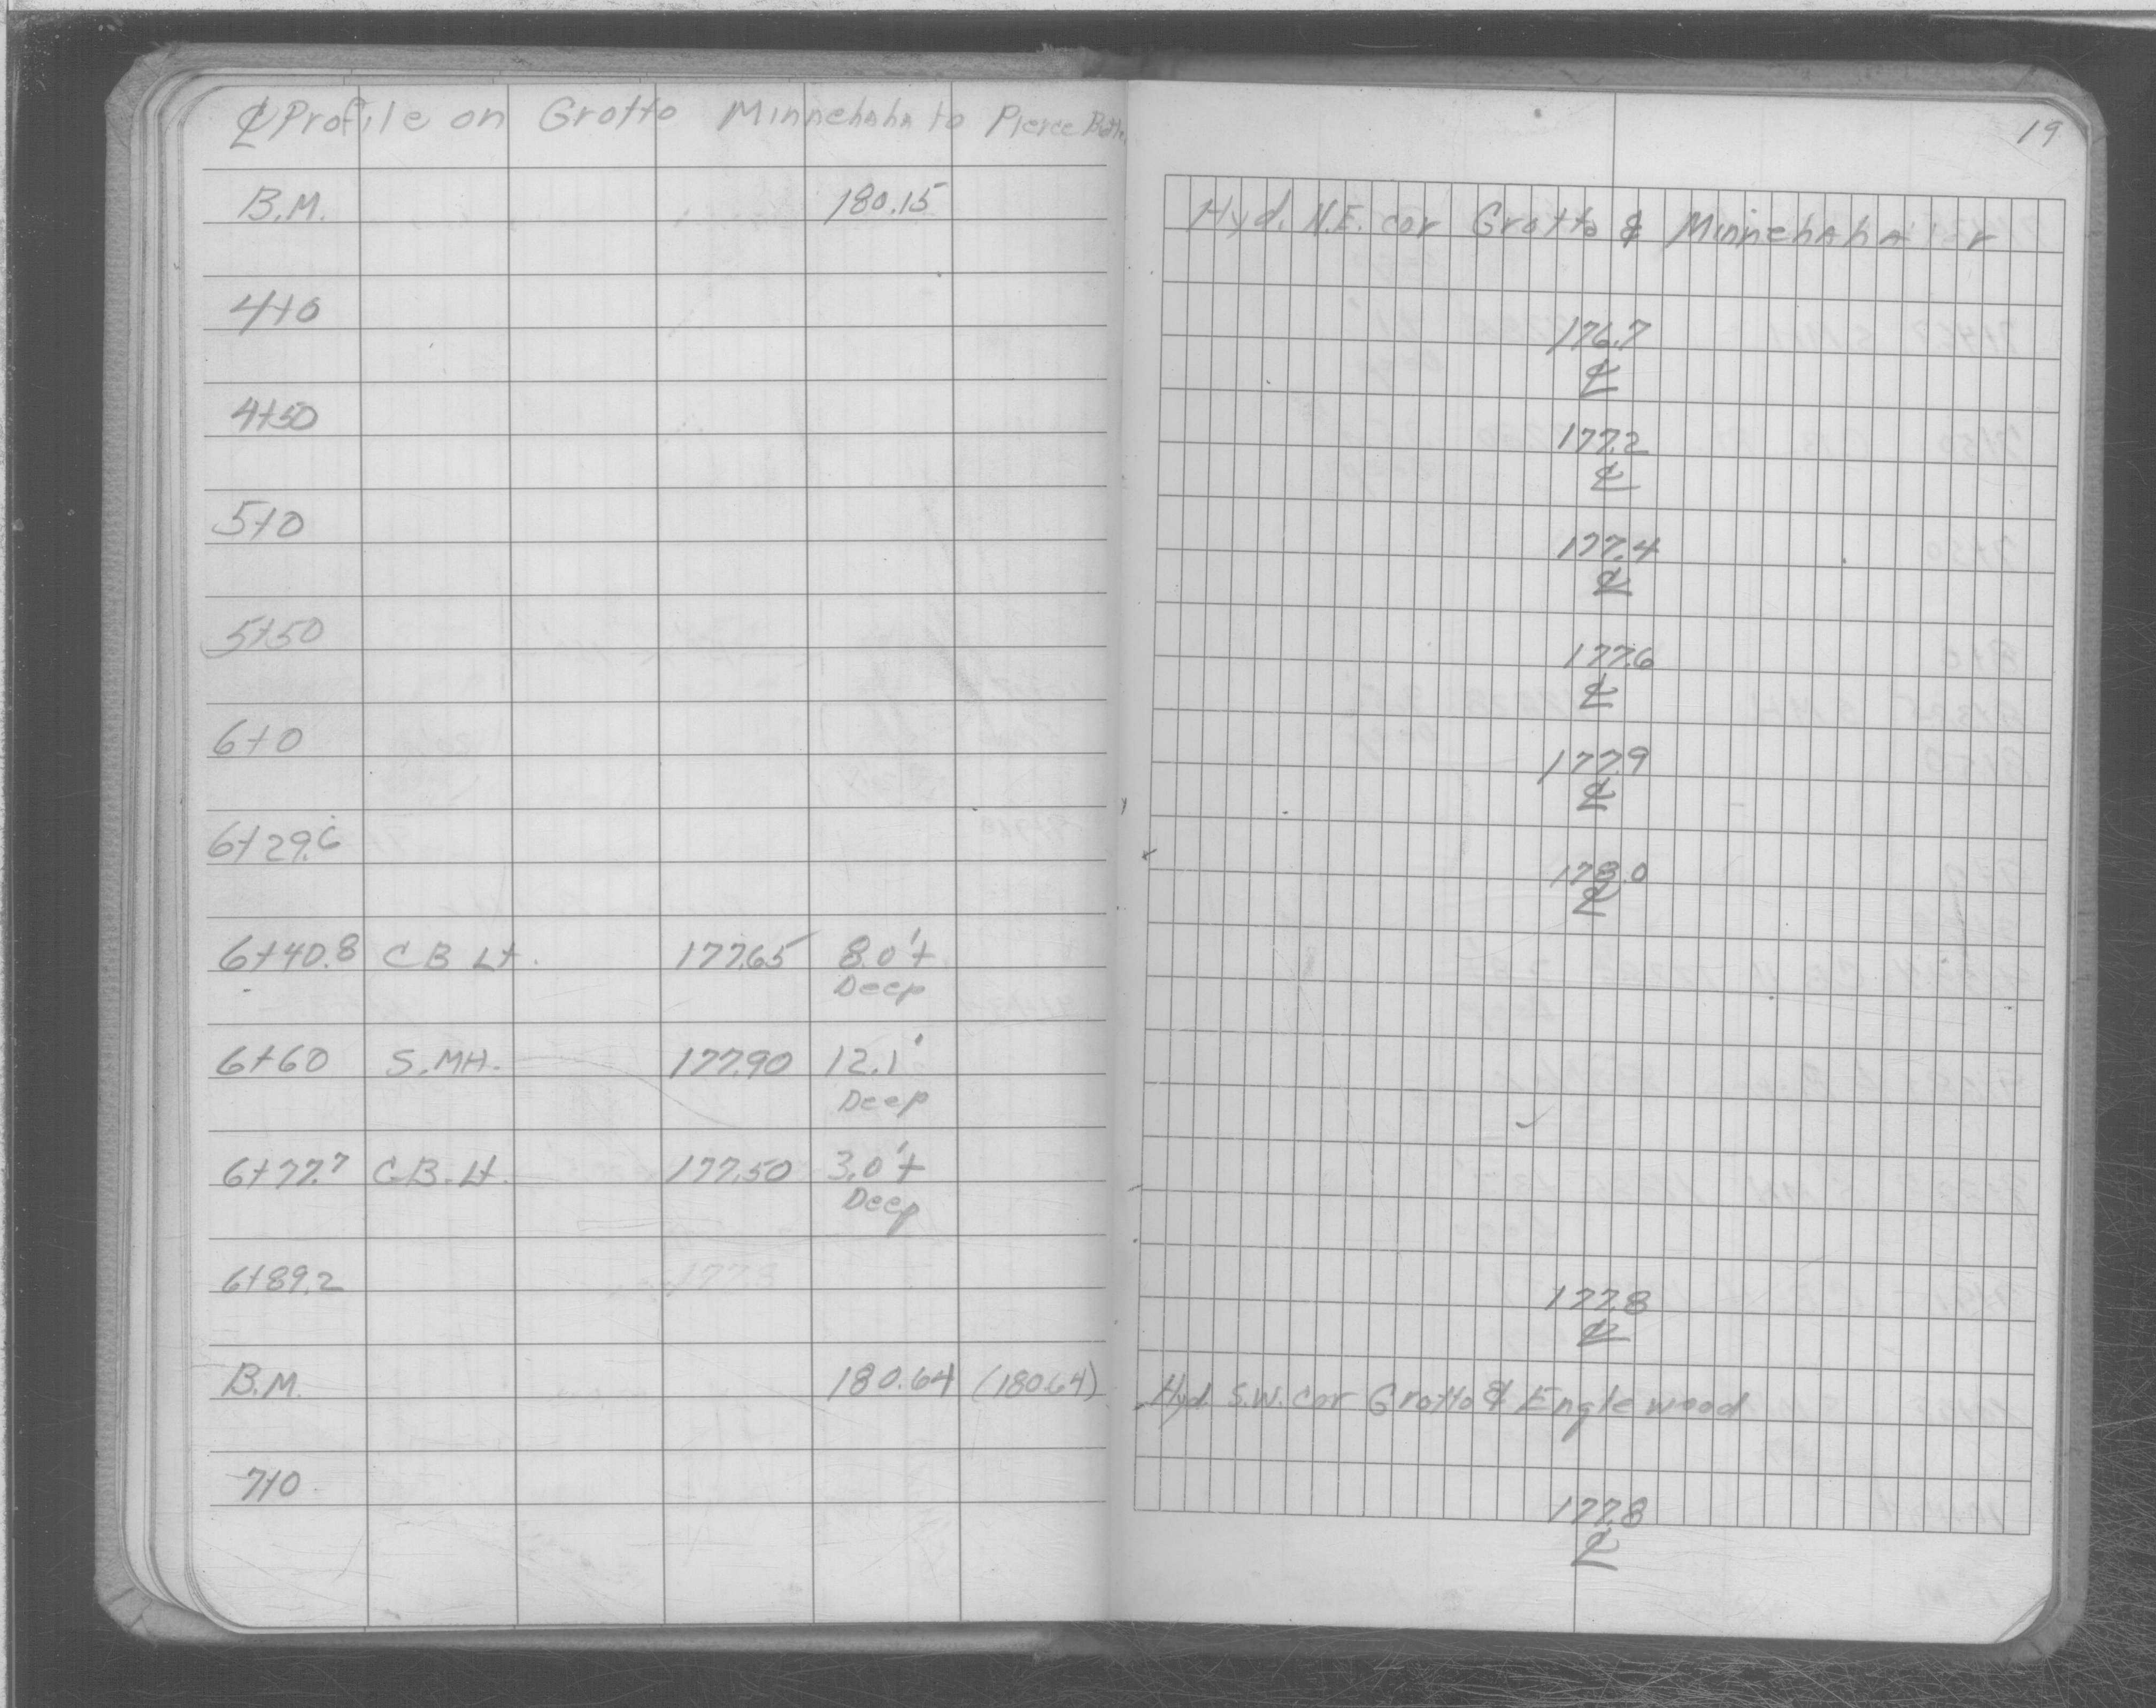 ℄ Profile on Grotto Minnehaha to Pierce
19
B.M. 180.15 Hyd. N.E. cor Grotto & Minnehaha
4+0 176.7
℄
4+50 177.2
℄
5+0 177.4
℄
5+50 177.6
℄
6+0 177.9
℄
6+29.6 178.0
℄
6+40.8 CB Lt. 177.65 8.0'±
Deep
6+60 S.MH. 177.90 12.1'
Deep
6+77.7 C.B. Lt. 177.50 3.0'±
Deep
6+89.2 177.8
℄
B.M. 180.64 (180.64) Hyd. S.W. cor Grotto & Englewood
7+0 177.8
℄